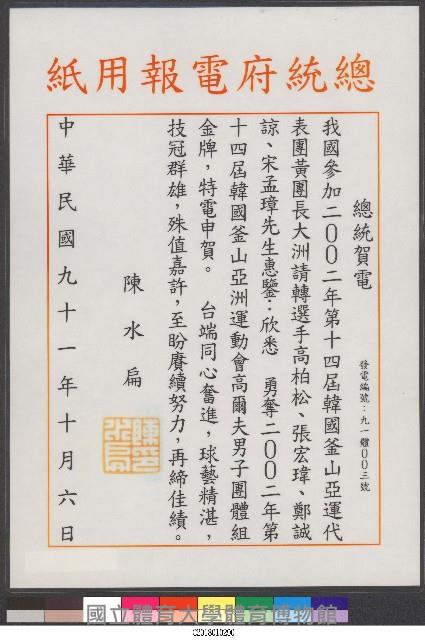 總統府電報用紙
總統賀電
發電編號：九一體００三號
我國參加二００二年第十四屆韓國釜山亞運代
表團黃團長大洲請轉選手高柏松、張宏瑋、鄭誠
諒、宋孟璋先生惠鑒：欣悉　勇奪二００二年第
十四屆韓國釜山亞洲運動會高爾夫男子團體組
金牌，特電申賀。　台端同心奮進，球藝精湛，
技冠群雄，殊值嘉許，至盼賡續努力，再締佳績。
陳水扁
中華民國九十一年十月六日
國立體育大學體育博物館
C2013010290